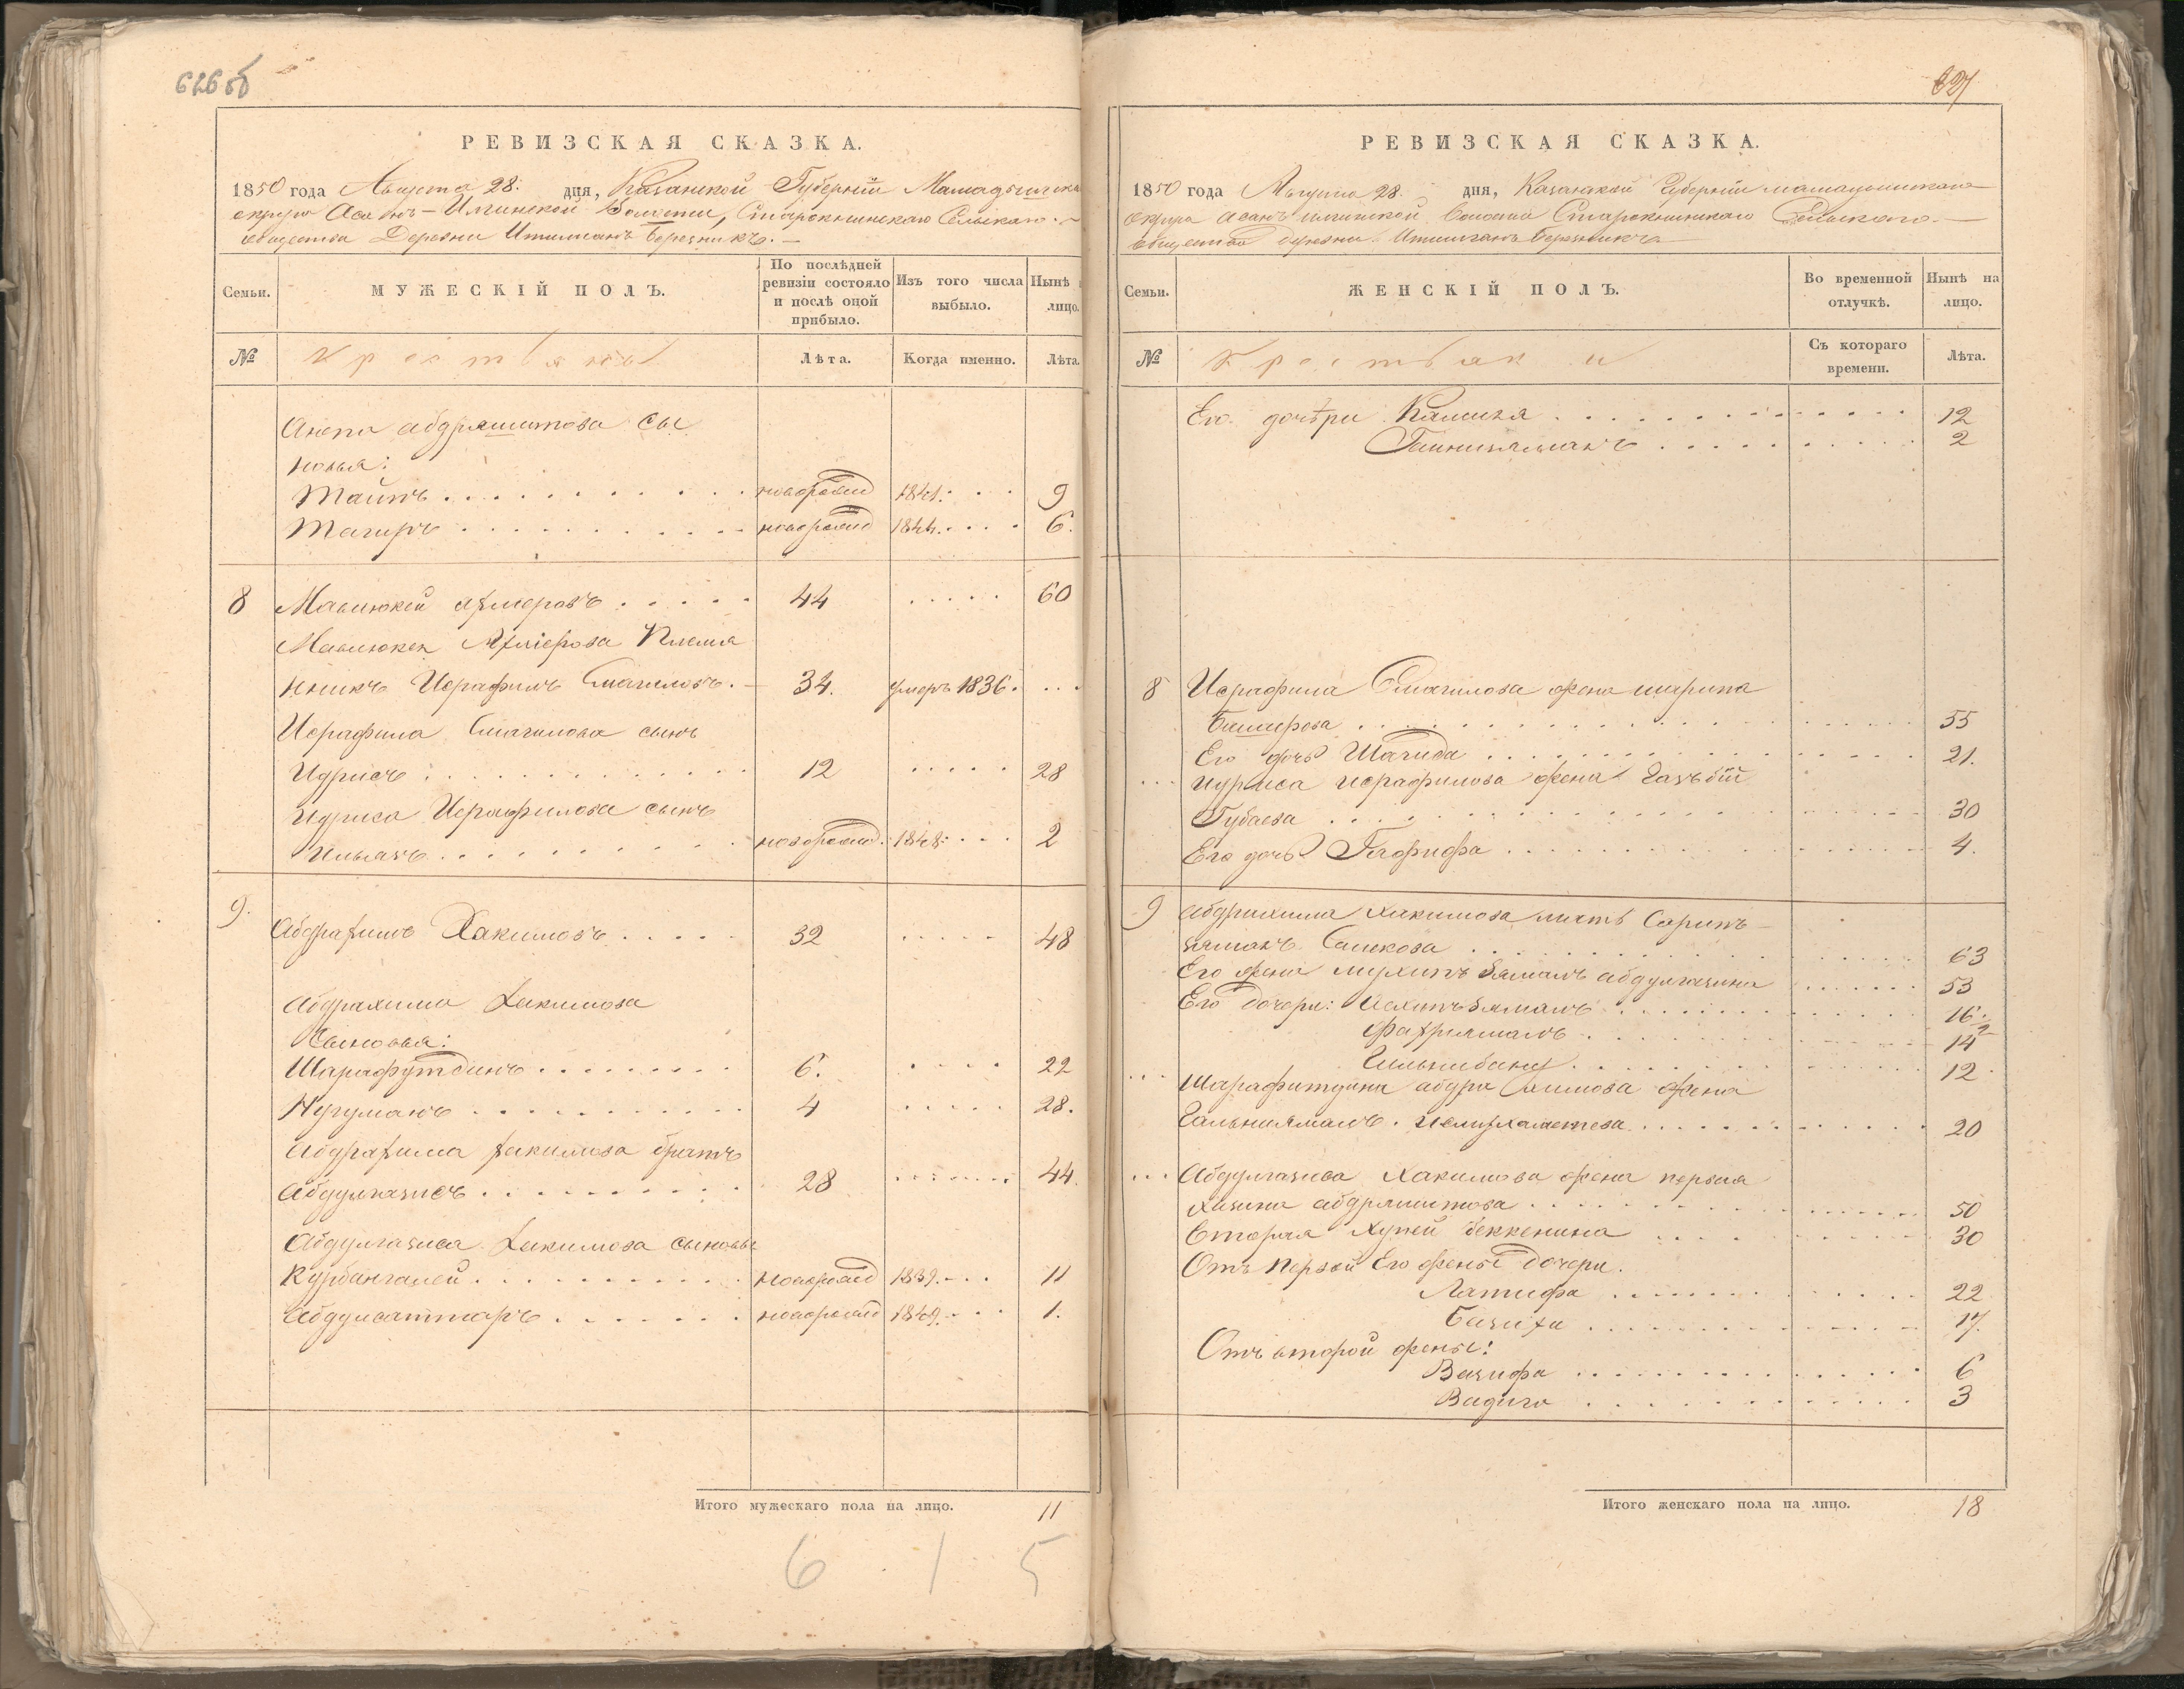 626 об
РЕВИЗСКАЯ СКАЗКА.
1850 года Августа 28. дня, Казанской Губерніи Мамадышска
округа Асанъ-Илгинской Волости, Старокнинскаго Сельскаго
общества Деревни Березникъ.
Семьи.
МУЖЕСКІЙ ПОЛЪ.
По послѣдней ревизіи состояло и послѣ оной прибыло.
Изъ того числа выбыло.
Нынѣ лицо.
№ Крестьяне Лѣта. Когда именно. Лѣта
Аюпа Абдряшитова сы
новья:
Таипъ новорожд 1841. 9
Тагиръ новорожд 1844. 6.
8 Мавлюкей 44 60
Мавлюкея Племя
нникъ Исрафилъ Смагиловъ. 34. умеръ 1836.
Исрафила Смагилова сынъ
Идрисъ 12 28
Идриса Исрафилова сынъ
Ильязъ новорожд. 1848. 2
9. Абдрахимъ Хакимовъ 32 48
Абдрахима Хакимова
Сыновья:
Шарафутдинъ 6. 22
Нугуманъ 4 28.
Абдрахима Хакимова братъ
Абдулгазисъ 28 44.
Абдулгазиса Хакимова сыновья
Курбангалей новорожд 1839. 11
Абдулсаттаръ новорожд 1849. 1.
Итого мужескаго пола на лицо. 11
6 1 5
627
РЕВИЗСКАЯ СКАЗКА.
1850 года Августа 28. дня, Казанской Губерніи Мамадышскаго
округа Асанъ Илгинской Волости Старокнинскаго Сельскаго
общества деревни Березникъ
Семьи.
ЖЕНСКІЙ ПОЛЪ.
Во временной отлучкѣ.
Нынѣ на лицо.
№ Крестьянки Съ котораго времени. Лѣта.
Его дочѣри Камиля 12
Гайнизяманъ 2
8 Исрафила Смагилова жена шарипа
Башерова 55
Его дочь Шагида 21.
Идриса Исрафилова жена
Губаева 30
Его дочь Гафифа 4.
9 Абдрахима Хакимова мать Сарипъ
зяманъ Салекова 63
Его жена Абдулгазина 53
Его дочери: 16
14
Гильмибану 12
Шарафитдина жена
20
Абдулгазиса Хакимова жена первая
Хазина Абдряшитова 50
Вторая Беккенина 30
Отъ первой Его жены дочери.
Латифа 22
Базиха 17.
Отъ второй жены:
Вазифа 6
Вадига 3
Итого женскаго пола на лицо. 18